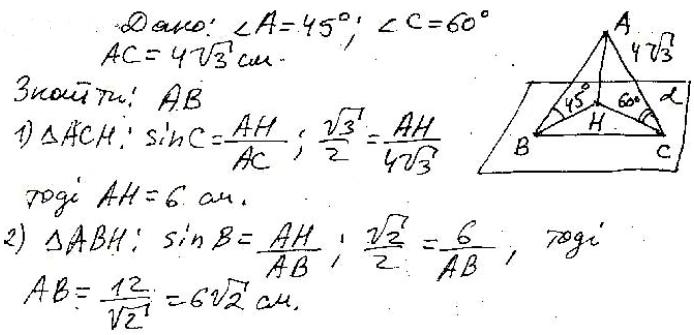 Дано: ∠A=45°; ∠C=60°
AC=4√3 см.
Знайти: AB
1) △ACH: sinC=AH/AC; √3/2=AH/4√3
тоді AH=6 см.
2) △ABH: sinB=AH/AB; √2/2=6/AB, тоді
AB=12/√2=6√2 см.
A
4√3
45°
60°
α
H
B
C